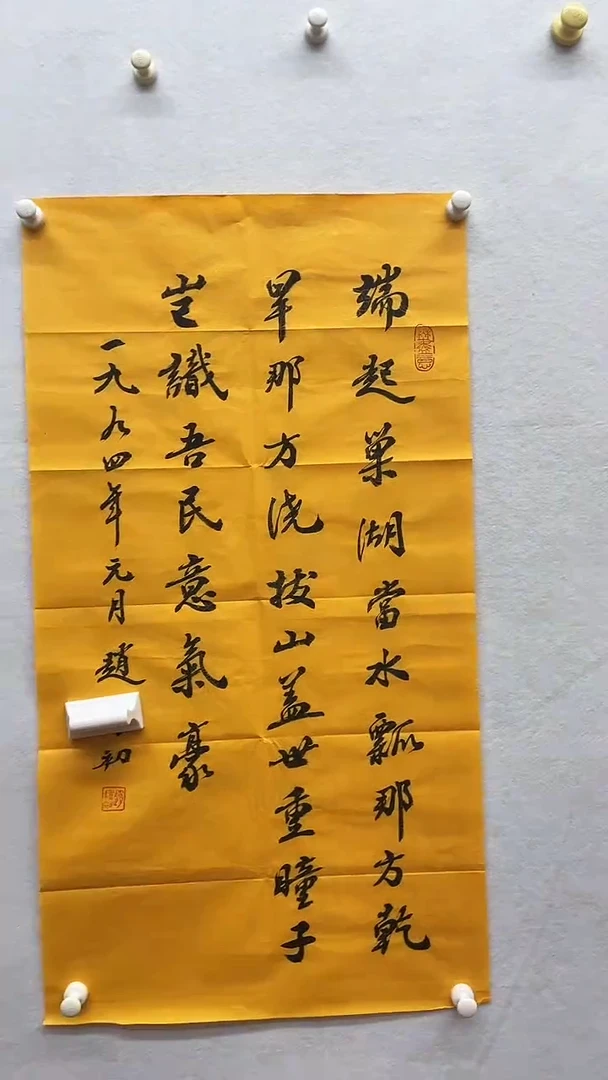 端起巢湖當水瓢那方乾
旱那方浇拔山盖世重瞳子
岂識吾民意氣豪
一九九四年元月趙
初